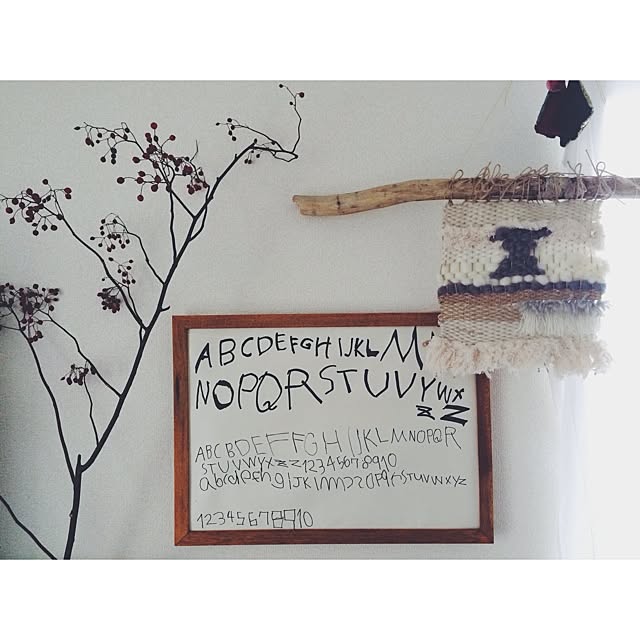 ABCDEFGHIJKLM
NOPQRSTUVVYWX
ZZ
ABCBDEFFGHIJKLMNOPQR
STUVWYXZZ12345678910
abcdefhgIJKlmnopqrstuvwxyz
12345678910